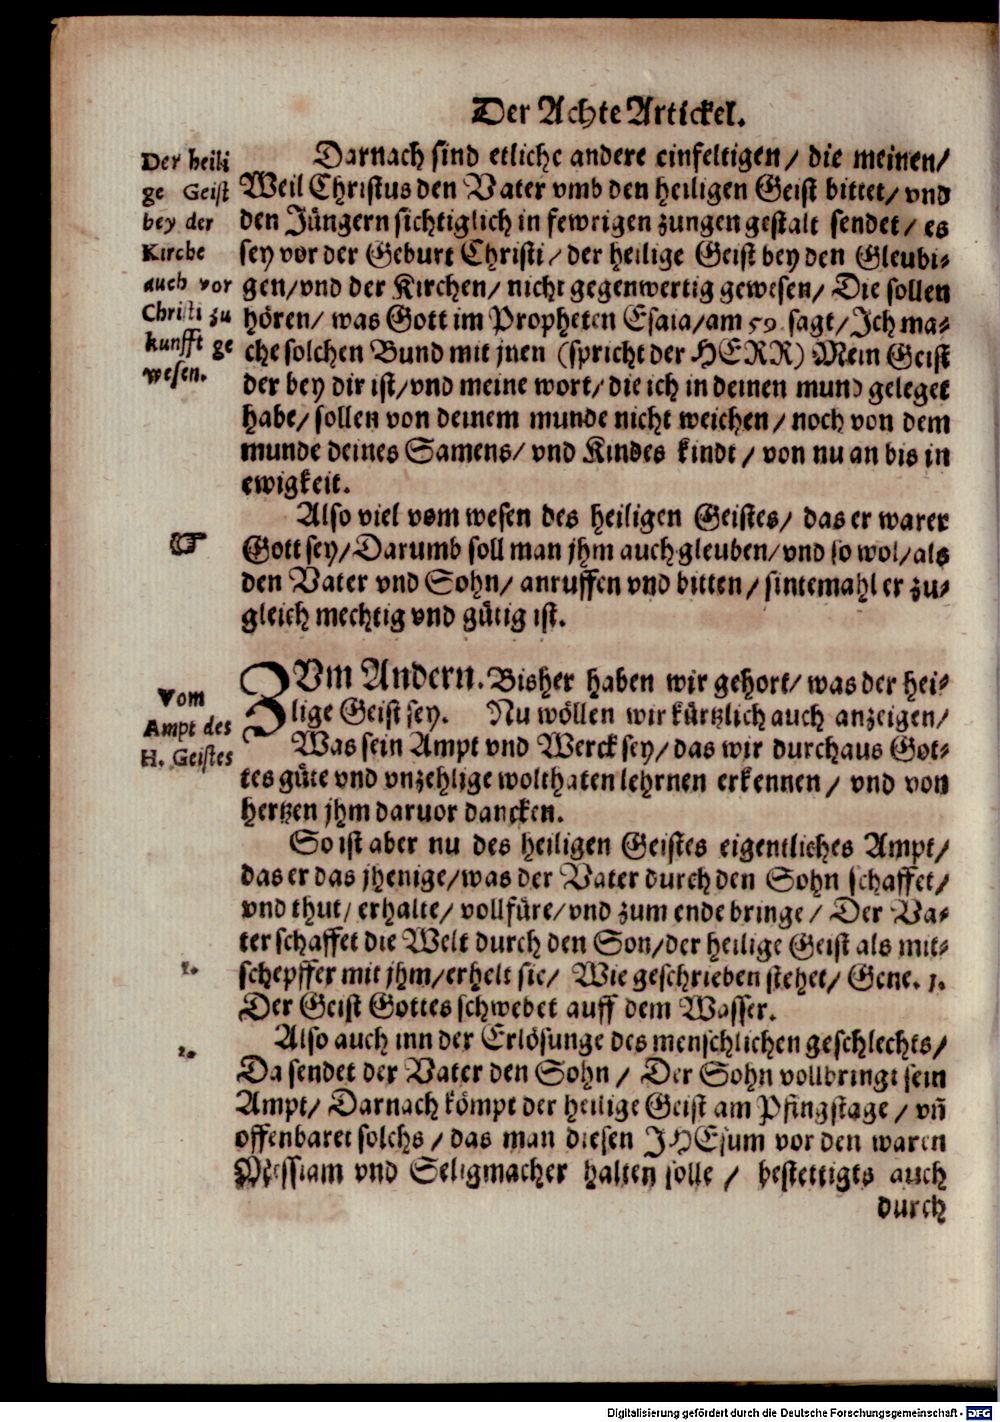 Der Achte Artickel.
Der heili
ge Geist
bey der
Kirche
auch vor
Christi zu
kunfft ge
wesen.
Darnach sind etliche andere einfeltigen / die meinen/
Weil Christus den Vater vmb den heiligen Geist bittet/ vnd
den Jüngern sichtiglich in fewrigen zungen gestalt sendet / es
sey vor der Geburt Christi / der heilige Geist bey den Gleubi-
gen/vnd der Kirchen/ nicht gegenwertig gewesen/ Die sollen
hören/ was Gott im Propheten Esaia/am 59. sagt/ Ich ma-
che solchen Bund mit jnen (spricht der HERR) Mein Geist
der bey dir ist/vnd meine wort/ die ich in deinen mund geleget
habe/ sollen von deinem munde nicht weichen / noch von dem
munde deines Samens/ vnd Kindes kindt / von nu an bis in
ewigkeit.
Also viel vom wesen des heiligen Geistes/ das er warer
☞ Gott sey/Darumb soll man jhm auch gleuben/vnd so wol/als
den Vater vnd Sohn/ anruffen vnd bitten / sintemahl er zu-
gleich mechtig vnd gütig ist.
Vom
Ampt des
H. Geistes
ZVm Andern. Bisher haben wir gehort/ was der hei-
lige Geist sey. Nu wöllen wir kürtzlich auch anzeigen/
Was sein Ampt vnd Werck sey/das wir durchaus Got-
tes güte vnd vnzehlige wolthaten lehrnen erkennen / vnd von
hertzen jhm daruor dancken.
So ist aber nu des heiligen Geistes eigentliches Ampt/
das er das jhenige/was der Vater durch den Sohn schaffet/
vnd thut/ erhalte/ vollfüre/vnd zum ende bringe / Der Va-
ter schaffet die Welt durch den Son/der heilige Geist als mit-
1. schepffer mit jhm/erhelt sie/ Wie geschrieben stehet/ Gene. 1.
Der Geist Gottes schwebet auff dem Wasser.
Also auch inn der Erlösunge des menschlichen geschlechts/
2. Da sendet der Vater den Sohn / Der Sohn vollbringt sein
Ampt/ Darnach kömpt der heilige Geist am Pfingstage / vñ
offenbaret solchs / das man diesen JHEsum vor den waren
Messiam vnd Seligmacher halten solle / bestettigts auch
durch
Digitalisierung gefördert durch die Deutsche Forschungsgemeinschaft - DFG